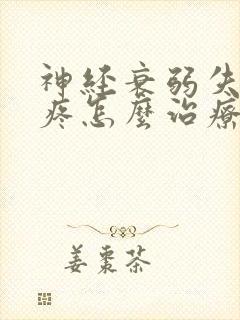 神經衰弱失
疼怎麼治療
姜棗茶